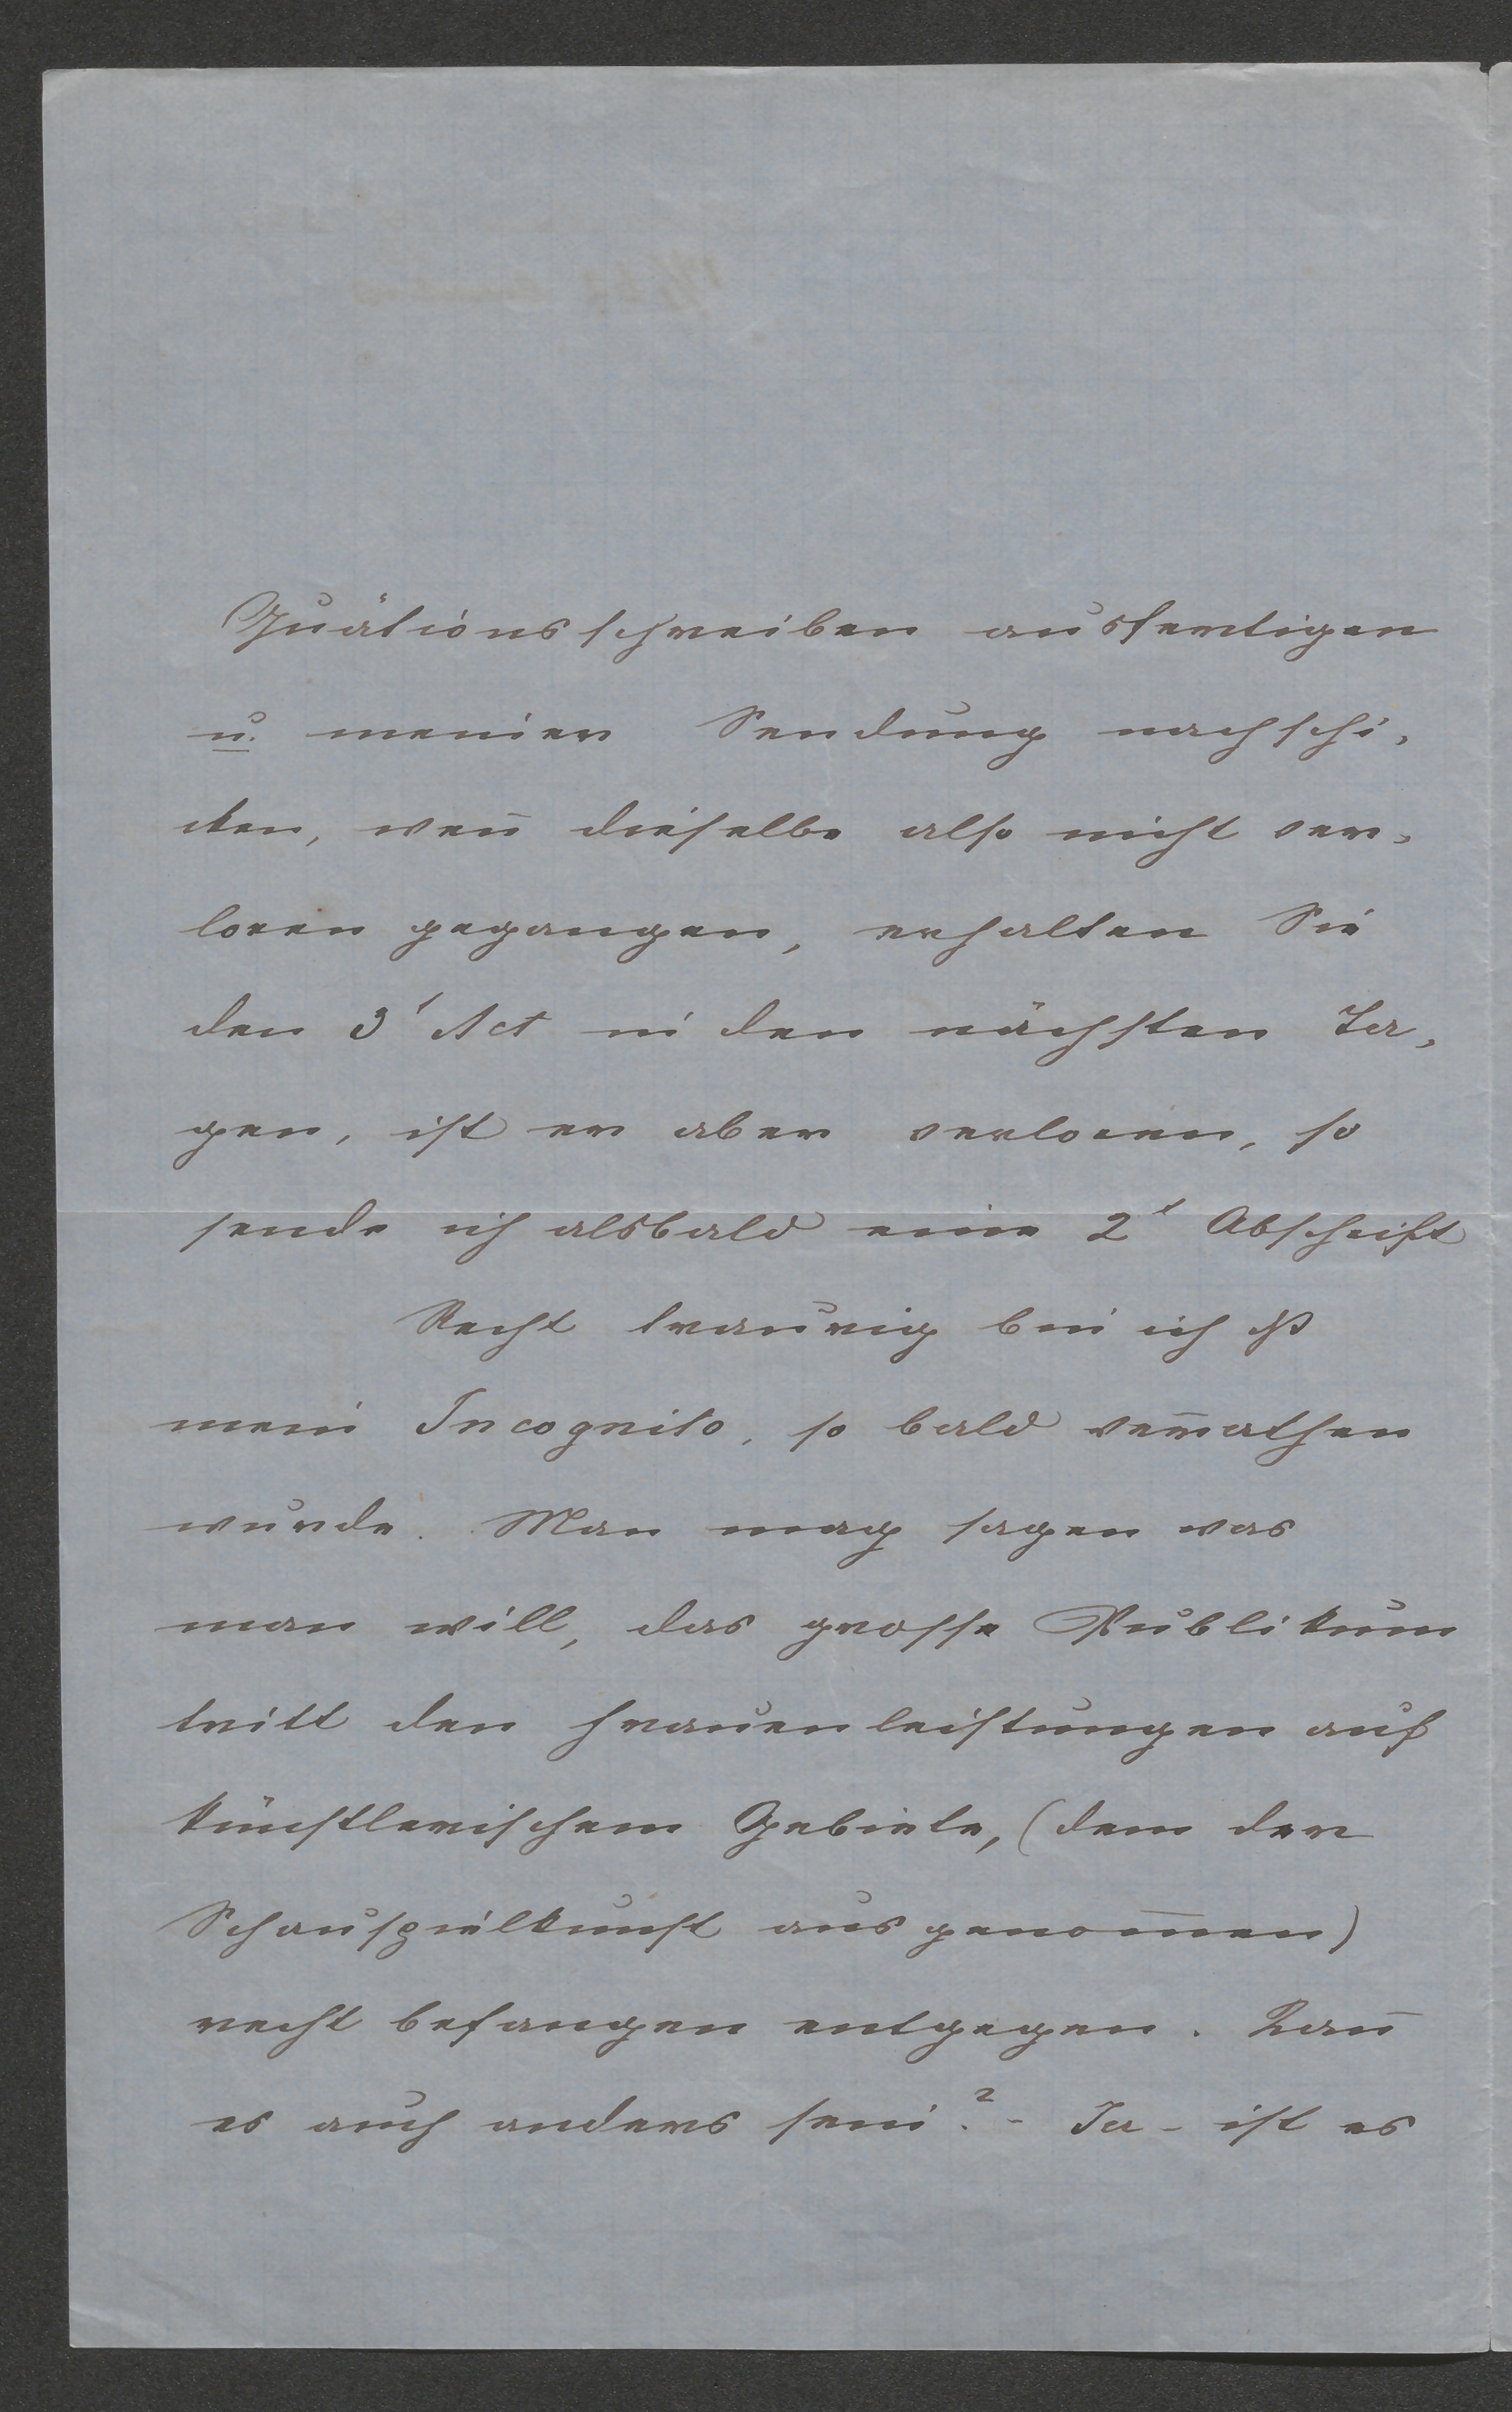 Quätionsschreiben ausfertigen
u. meiner Sendung nachschi,
cken, wen̄ dieselbe also nicht ver,
loren gegangen, erhalten Sie
den 3t Act in den nächsten Ta,
gen, ist er aber verloren, so
sende ich alsbald eine 2t Abschrift
Recht traurig bin ich dß
mein Incognito, so bald verrathen
wurde. Man mag sagen was
man will, das grosse Publikum
tritt den Frauenleistungen auf
künstlerischem Gebiete, (dem der
Schauspielkunst ausgenom̄en)
recht befangen entgegen. Kan̄
es auch anders sein? - Ja - ist es